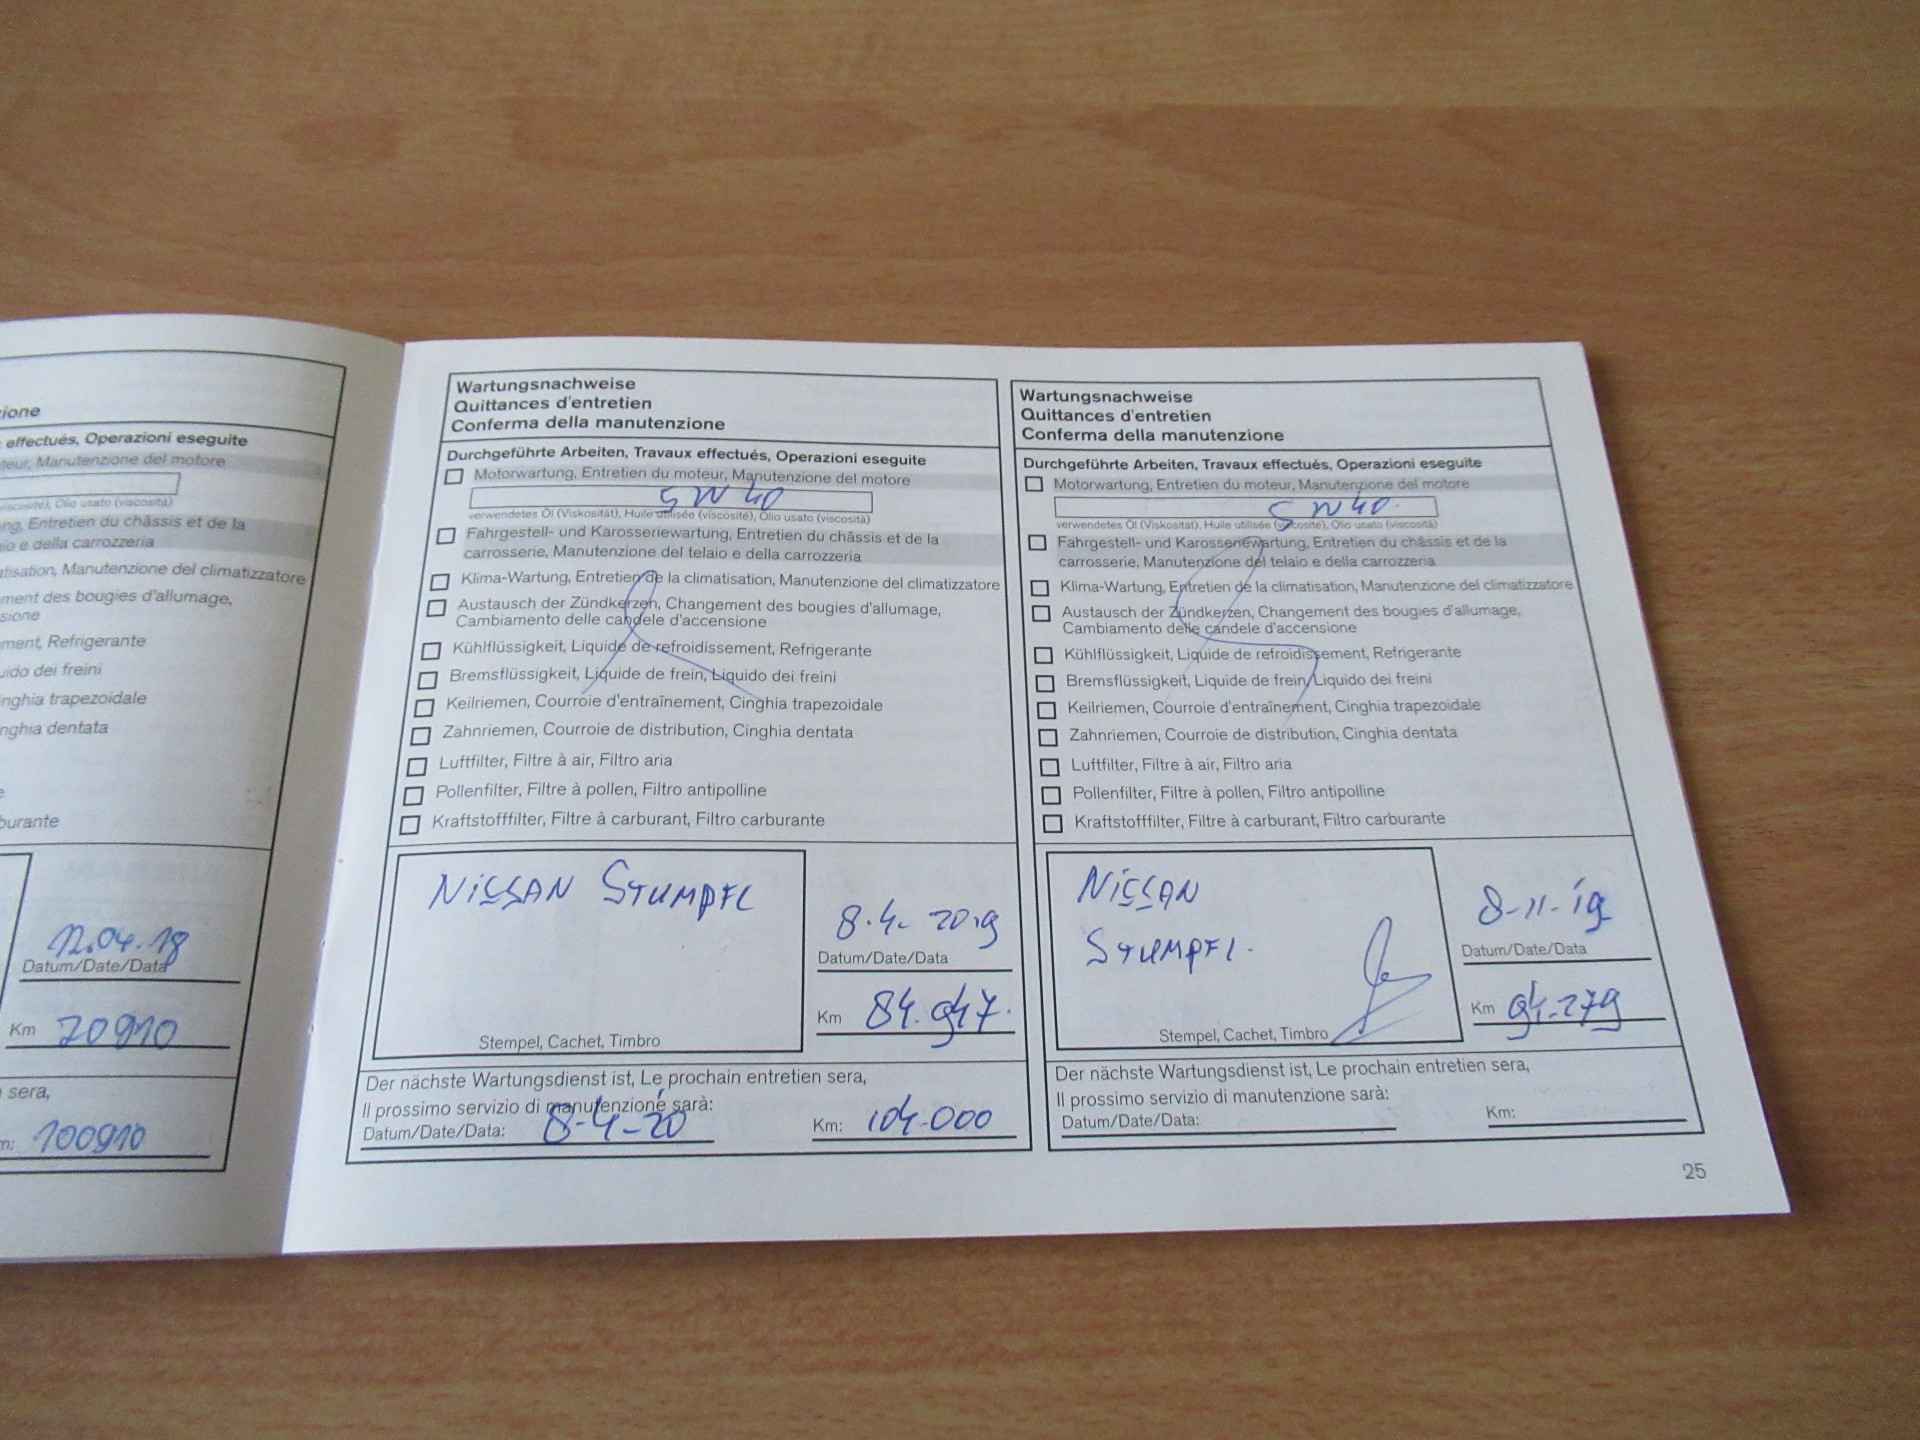 zione
effectués, Operazioni eseguite
teur, Manutenzione del motore
viscosité), Olio usato (viscosità)
ng, Entretien du châssis et de la
io e della carrozzeria
atisation, Manutenzione del climatizzatore
ment des bougies d'allumage,
sione
ment, Refrigerante
uido dei freini
inghia trapezoidale
nghia dentata
e
burante
12.04.18
Datum/Date/Data
Km 70910
sera,
m: 100910
Wartungsnachweise
Quittances d'entretien
Conferma della manutenzione
Durchgeführte Arbeiten, Travaux effectués, Operazioni eseguite
Motorwartung, Entretien du moteur, Manutenzione del motore
5W40
verwendetes Öl (Viskosität), Huile utilisée (viscosité), Olio usato (viscosità)
Fahrgestell- und Karosseriewartung, Entretien du châssis et de la
carrosserie, Manutenzione del telaio e della carrozzeria
Klima-Wartung, Entretien de la climatisation, Manutenzione del climatizzatore
Austausch der Zündkerzen, Changement des bougies d'allumage,
Cambiamento delle candele d'accensione
Kühlflüssigkeit, Liquide de refroidissement, Refrigerante
Bremsflüssigkeit, Liquide de frein, Liquido dei freini
Keilriemen, Courroie d'entraînement, Cinghia trapezoidale
Zahnriemen, Courroie de distribution, Cinghia dentata
Luftfilter, Filtre à air, Filtro aria
Pollenfilter, Filtre à pollen, Filtro antipolline
Kraftstofffilter, Filtre à carburant, Filtro carburante
NISSAN STUMPFL
Stempel, Cachet, Timbro
8.4.2019
Datum/Date/Data
Km 84.947.
Der nächste Wartungsdienst ist, Le prochain entretien sera,
Il prossimo servizio di manutenzione sarà:
Datum/Date/Data: 8-4-20 Km: 104.000
Wartungsnachweise
Quittances d'entretien
Conferma della manutenzione
Durchgeführte Arbeiten, Travaux effectués, Operazioni eseguite
Motorwartung, Entretien du moteur, Manutenzione del motore
5W40.
verwendetes Öl (Viskosität), Huile utilisée (viscosité), Olio usato (viscosità)
Fahrgestell- und Karosseriewartung, Entretien du châssis et de la
carrosserie, Manutenzione del telaio e della carrozzeria
Klima-Wartung, Entretien de la climatisation, Manutenzione del climatizzatore
Austausch der Zündkerzen, Changement des bougies d'allumage,
Cambiamento delle candele d'accensione
Kühlflüssigkeit, Liquide de refroidissement, Refrigerante
Bremsflüssigkeit, Liquide de frein, Liquido dei freini
Keilriemen, Courroie d'entraînement, Cinghia trapezoidale
Zahnriemen, Courroie de distribution, Cinghia dentata
Luftfilter, Filtre à air, Filtro aria
Pollenfilter, Filtre à pollen, Filtro antipolline
Kraftstofffilter, Filtre à carburant, Filtro carburante
NISSAN
STUMPFL.
Stempel, Cachet, Timbro
8-11-19
Datum/Date/Data
Km 94.279
Der nächste Wartungsdienst ist, Le prochain entretien sera,
Il prossimo servizio di manutenzione sarà:
Datum/Date/Data: Km:
25